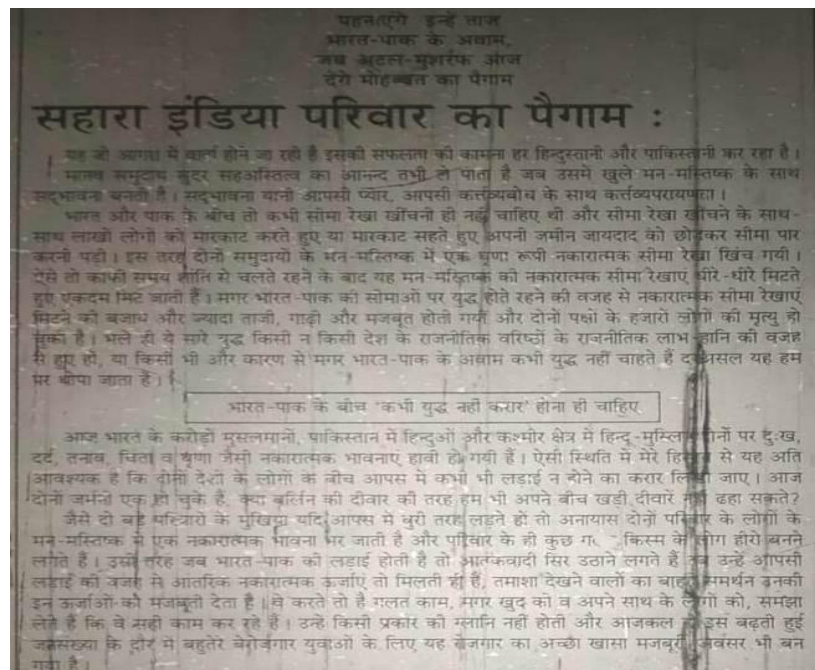 पहनाएंगे इन्हें ताज
भारत-पाक के अवाम,
जब अटल-मुशर्रफ आज
देंगे मोहब्बत का पैगाम
सहारा इंडिया परिवार का पैगाम :
यह जो आगरा में वार्ता होने जा रही है इसकी सफलता की कामना हर हिन्दुस्तानी और पाकिस्तानी कर रहा है।
मानव समुदाय सुंदर सहअस्तित्व का आनन्द तभी ले पाता है जब उसमें खुले मन-मस्तिष्क के साथ
सद्भावना बनती है। सद्भावना यानी आपसी प्यार, आपसी कर्त्तव्यबोध के साथ कर्त्तव्यपरायणता।
भारत और पाक के बीच तो कभी सीमा रेखा खींचनी ही नहीं चाहिए थी और सीमा रेखा खींचने के साथ-
साथ लाखों लोगों को मारकाट करते हुए या मारकाट सहते हुए अपनी जमीन जायदाद को छोड़कर सीमा पार
करनी पड़ी। इस तरह दोनों समुदायों के मन-मस्तिष्क में एक घृणा रूपी नकारात्मक सीमा रेखा खिंच गयी।
ऐसे तो काफी समय शांति से चलते रहने के बाद यह मन-मस्तिष्क की नकारात्मक सीमा रेखाएं धीरे-धीरे मिटते
हुए एकदम मिट जाती हैं। मगर भारत-पाक की सीमाओं पर युद्ध होते रहने की वजह से नकारात्मक सीमा रेखाएं
मिटने की बजाय और ज्यादा ताजी, गाढ़ी और मजबूत होती गयीं और दोनों पक्षों के हजारों लोगों की मृत्यु हो
चुकी है। भले ही ये सारे युद्ध किसी न किसी देश के राजनीतिक वरिष्ठों के राजनीतिक लाभ हानि की वजह
से हुए हों, या किसी भी और कारण से मगर भारत-पाक के अवाम कभी युद्ध नहीं चाहते हैं दरअसल यह हम
पर थोपा जाता है।
भारत-पाक के बीच 'कभी युद्ध नहीं करार' होना ही चाहिए
आज भारत के करोड़ों मुसलमानों, पाकिस्तान में हिन्दुओं और कश्मीर क्षेत्र में हिन्दू-मुस्लिम दोनों पर दुःख,
दर्द, तनाव, चिंता व घृणा जैसी नकारात्मक भावनाएं हावी हो गयी हैं। ऐसी स्थिति में मेरे हिसाब से यह अति
आवश्यक है कि दोनों देशों के लोगों के बीच आपस में कभी भी लड़ाई न होने का करार लिया जाए। आज
दोनों जर्मनी एक हो चुके हैं, क्या बर्लिन की दीवार की तरह हम भी अपने बीच खड़ी दीवारें नहीं ढहा सकते?
जैसे दो बड़े परिवारों के मुखिया यदि आपस में बुरी तरह लड़ते हों तो अनायास दोनों परिवार के लोगों के
मन-मस्तिष्क में एक नकारात्मक भावना भर जाती है और परिवार के ही कुछ किस्म के लोग हीरो बनने
लगते हैं। उसी तरह जब भारत-पाक की लड़ाई होती है तो आतंकवादी सिर उठाने लगते हैं तब उन्हें आपसी
लड़ाई की वजह से आंतरिक नकारात्मक ऊर्जाएं तो मिलती ही हैं, तमाशा देखने वालों का बाहरी समर्थन उनकी
इन ऊर्जाओं को मजबूती देता है। वे करते तो हैं गलत काम, मगर खुद को व अपने साथ के लोगों को, समझा
लेते हैं कि वे सही काम कर रहे हैं। उन्हें किसी प्रकार की ग्लानि नहीं होती और आजकल इस बढ़ती हुई
जनसंख्या के दौर में बहुतेरे बेरोजगार युवाओं के लिए यह रोजगार का अच्छा खासा मजबूरी अवसर भी बन
गया है।